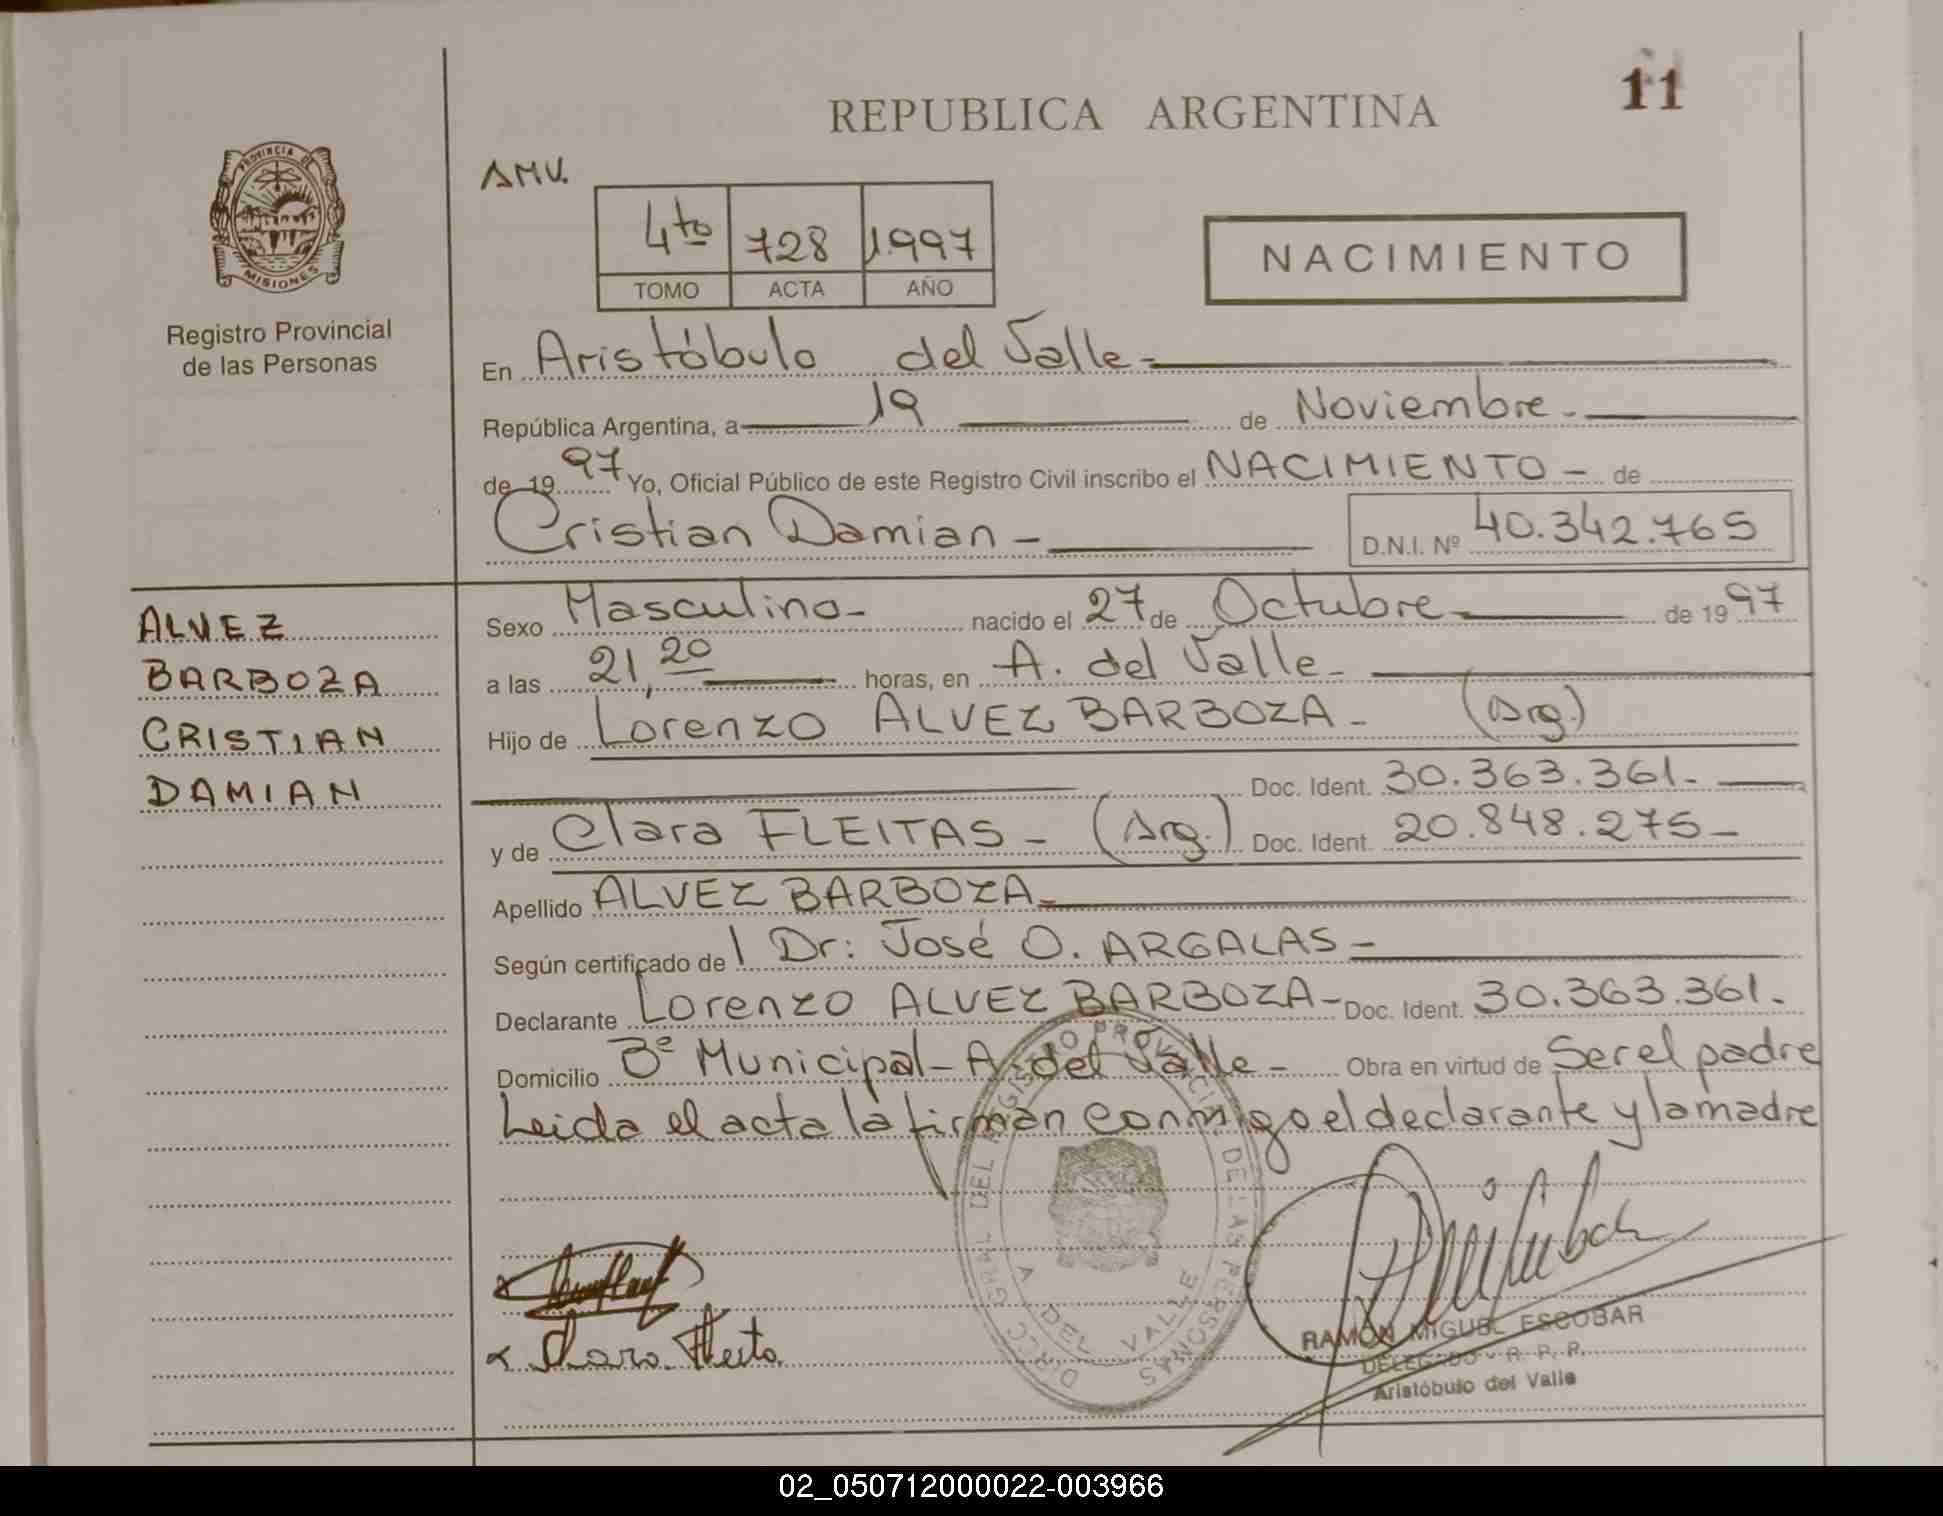 11
REPUBLICA ARGENTINA
PROVINCIA DE
MISIONES
Registro Provincial
de las Personas
AMV.
4to 728 1.997
TOMO ACTA AÑO
NACIMIENTO
En Aristóbulo del Valle -
República Argentina, a 19 de Noviembre -
de 19 97 Yo, Oficial Público de este Registro Civil inscribo el NACIMIENTO - de
Cristian Damian - D.N.I. Nº 40.342.765
ALVEZ
BARBOZA
CRISTIAN
DAMIAN
Sexo Masculino - nacido el 27 de Octubre - de 19 97
a las 21,20 horas, en A. del Valle -
Hijo de Lorenzo ALVEZ BARBOZA - (Arg.)
Doc. Ident. 30.363.361 -
y de Clara FLEITAS - (Arg.) Doc. Ident. 20.848.275 -
Apellido ALVEZ BARBOZA -
Según certificado de Dr: José O. ARGALAS -
Declarante Lorenzo ALVEZ BARBOZA - Doc. Ident. 30.363.361 -
Domicilio Bº Municipal - A. del Valle - Obra en virtud de Ser el padre
Leida el acta la firman conmigo el declarante y la madre
DIRECC. GRAL. DEL REGISTRO PROVINCIAL DE LAS PERSONAS
A. DEL VALLE
RAMÓN MIGUEL ESCOBAR
DELEGADO - R. P. P.
Aristóbulo del Valle
02_050712000022-003966